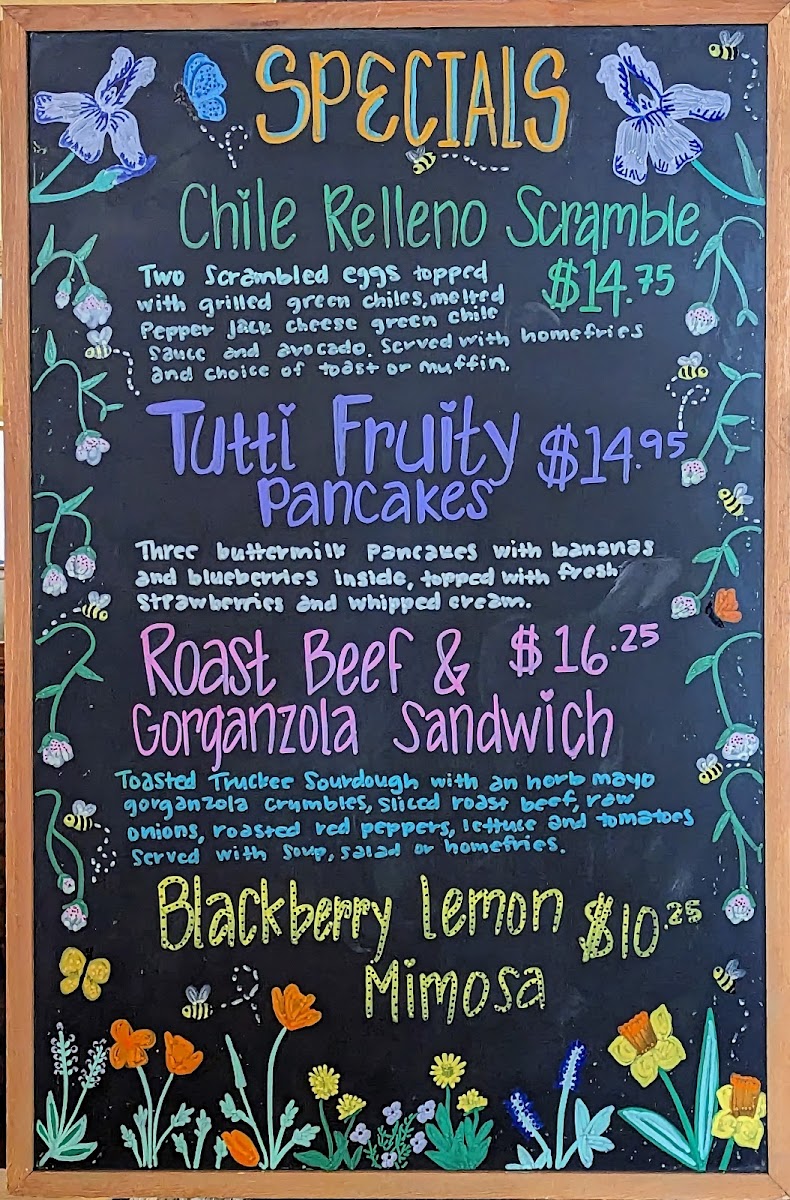 SPECIALS
Chile Relleno Scramble
Two Scrambled eggs topped
$14.75
with grilled green chiles, melted
Pepper Jack cheese green chile
Sauce and avocado. Served with homefries
and choice of toast or muffin.
Tutti Fruity $14.95
Pancakes
Three buttermilk pancakes with bananas
and blueberries inside, topped with fresh
strawberries and whipped cream.
Roast Beef & $16.25
Gorganzola Sandwich
Toasted Truckee Sourdough with an herb mayo
gorganzola crumbles, sliced roast beef, raw
onions, roasted red peppers, lettuce and tomatoes
Served with soup, salad or homefries.
Blackberry Lemon $10.25
Mimosa